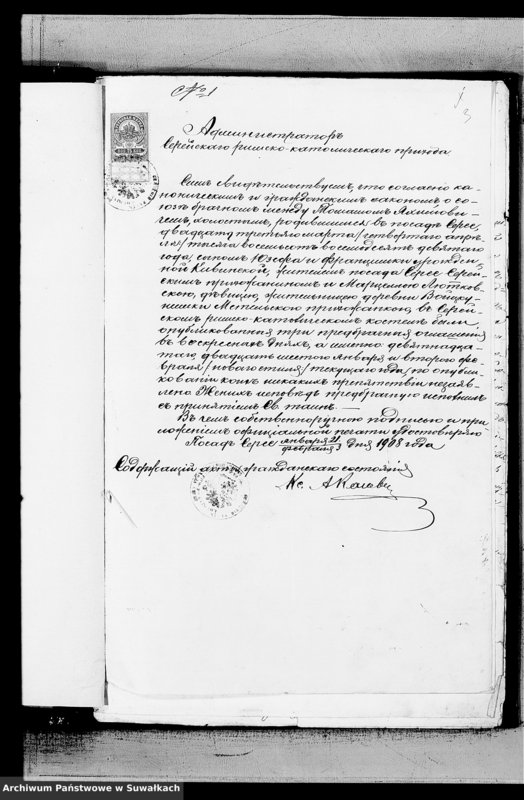 № 1
Администраторъ
Серейскаго римско-католическаго прихода
Симъ свидѣтельствуетъ, что согласно ка-
ноническимъ и гражданскимъ законамъ о со-
юзѣ брачномъ между Томашомъ Яхимови-
чемъ, холостымъ, родившимся въ посадѣ Серее,
двадцать третьяго марта / четвертаго апрѣ-
ля / тысяча восемьсотъ восемьдесятъ девятаго
года, сыномъ Юзефа и Францишки урожден-
ной Кивинской, жителемъ посада Серее Серей-
скимъ прихожаниномъ и Марцеллою Лютков-
скою, дѣвицею, жительницею деревни Войцю-
нишки Метельскою прихожанкою, въ Серей-
скомъ римско-католическомъ костелѣ были
опубликованы три предбрачныя оглашенія
въ воскресныхъ дняхъ, а именно девятнадца-
таго, двадцать шестого января и второго фе-
враля / новаго стиля / текущаго года / по опубли-
кованіи коихъ никакихъ препятствій не заяв-
лено. Женихъ исповѣдь предбрачную исполнилъ
съ принятіемъ Св. таинъ. —
Въ чемъ собственноручною подписью и при
ложеніемъ оффиціальной печати удостовѣряю
Посадъ Серее января 21 / февраля 3 дня 1908 года
Содержащій акты гражданскаго состоянія
Кс. А
Archiwum Państwowe w Suwałkach